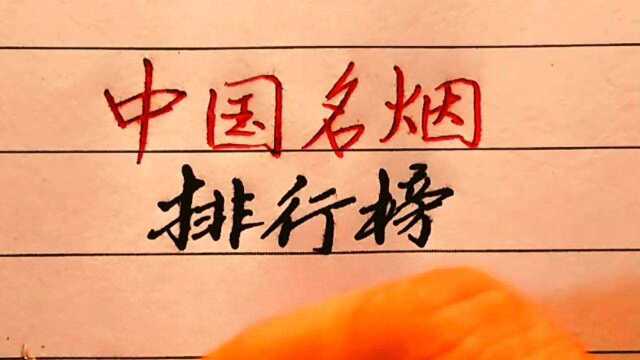 中国名烟
排行榜